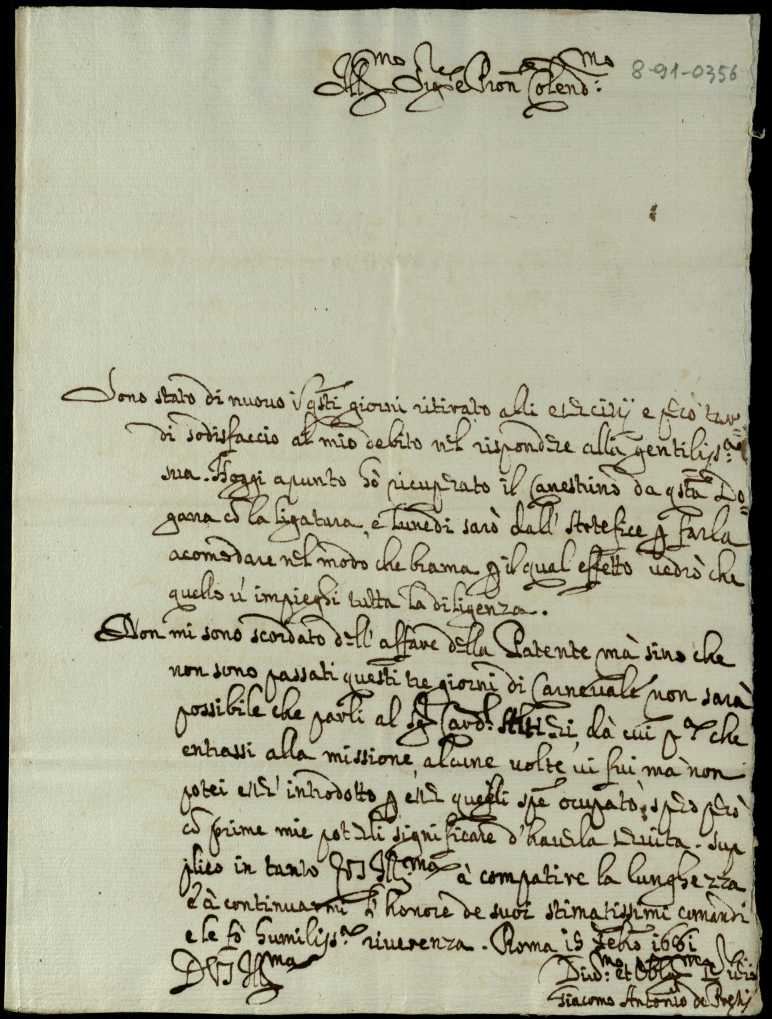 Ill.mo Sig.re e Pron Colend.mo
8-91-0356
Sono stato di nuovo i qsti giorni ritirato alli esercitij e però tar=
di sodisfaccio al mio debito nel rispondere alla gentiliss.ma
sua. Hoggi apunto hò ricuperato il Canestrino da qsta Do=
gana cō la ligatura, e lunedi sarò dall'Artefice p farla
acomodare nel modo che brama p il qual effetto vedrò che
quello vi impieghi tutta la diligenza.
Non mi sono scordato dell'affare della Patente mà sino che
non sono passati questi tre giorni di Carnevale non sarà
possibile che parli al Sig.r Card.l Altieri, dà cui p.a che
entrassi alla missione, alcune volte vi fui mà non
potei esser introdotto p esser quegli spē ocupato, spero però
cō prime mie poterli significare d'haverla servita. Sup
plico in tanto VS Ill.ma à compatire la lunghezza
e à continuarmi l'honore de suoi stimatissimi comandi
e le fò humiliss.a riverenza. Roma 19 Febro 1661
D VS Ill.ma
Div.mo et Obl.mo
Giacomo Antonio de